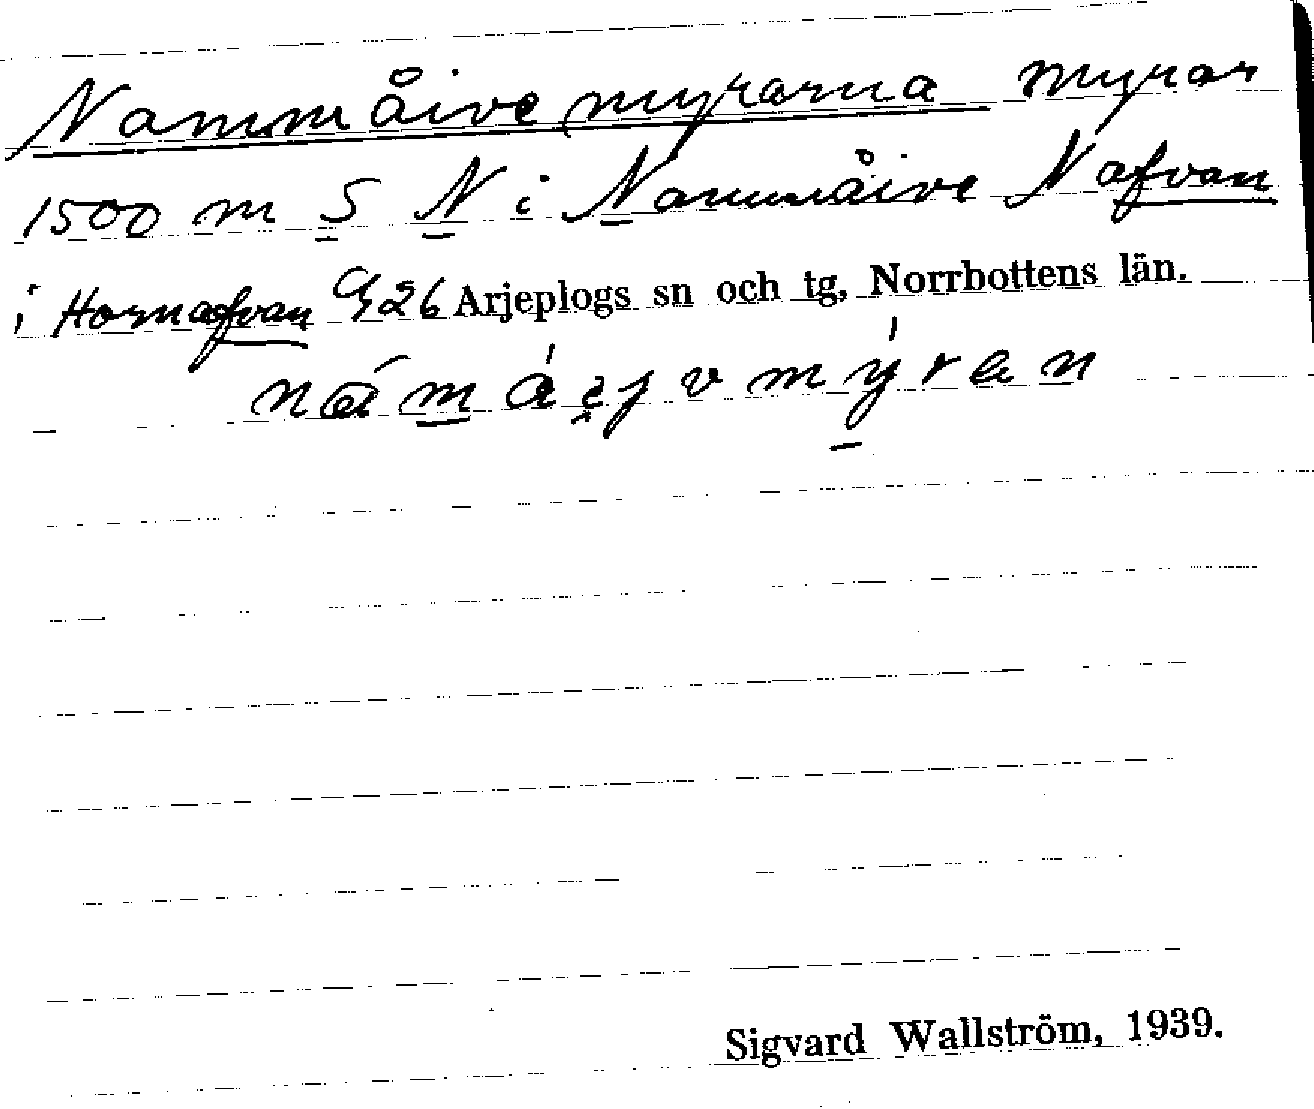 Nammåivemyrarna myrar
1500 m S N i Nammåive N afvan
i Hornafvan G26 Arjeplogs sn och tg, Norrbottens län.
Sigvard Wallström, 1939.